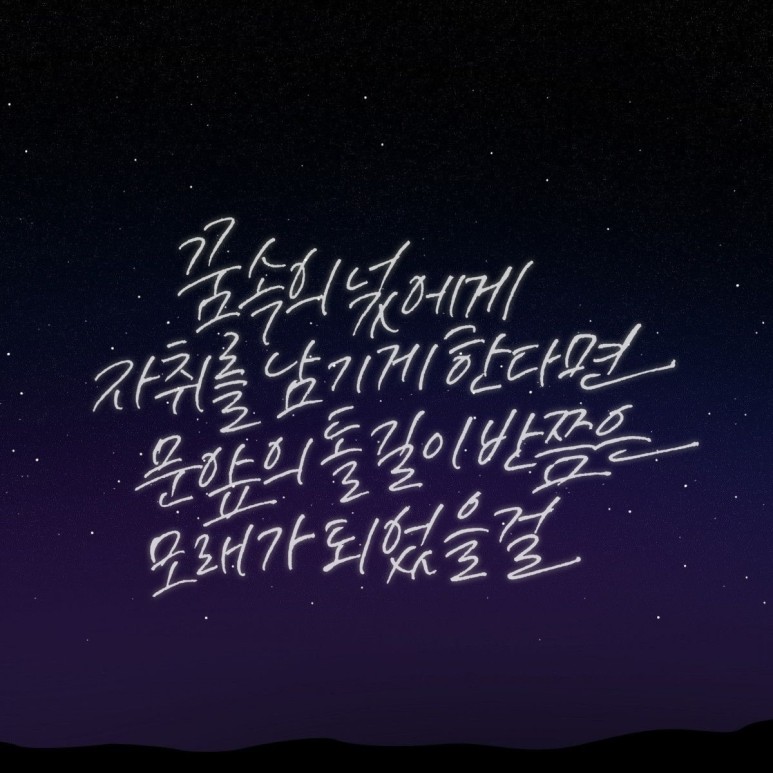 꿈속의 넋에게
자취를 남기게 한다면
문앞의 돌길이 반쯤은
모래가 되었을걸